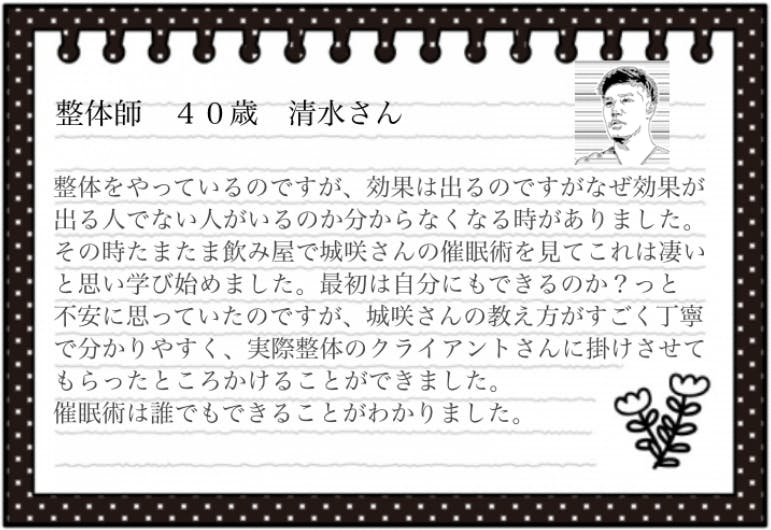 整体師　４０歳　清水さん
整体をやっているのですが、効果は出るのですがなぜ効果が
出る人でない人がいるのか分からなくなる時がありました。
その時たまたま飲み屋で城咲さんの催眠術を見てこれは凄い
と思い学び始めました。最初は自分にもできるのか？っと
不安に思っていたのですが、城咲さんの教え方がすごく丁寧
で分かりやすく、実際整体のクライアントさんに掛けさせて
もらったところかけることができました。
催眠術は誰でもできることがわかりました。